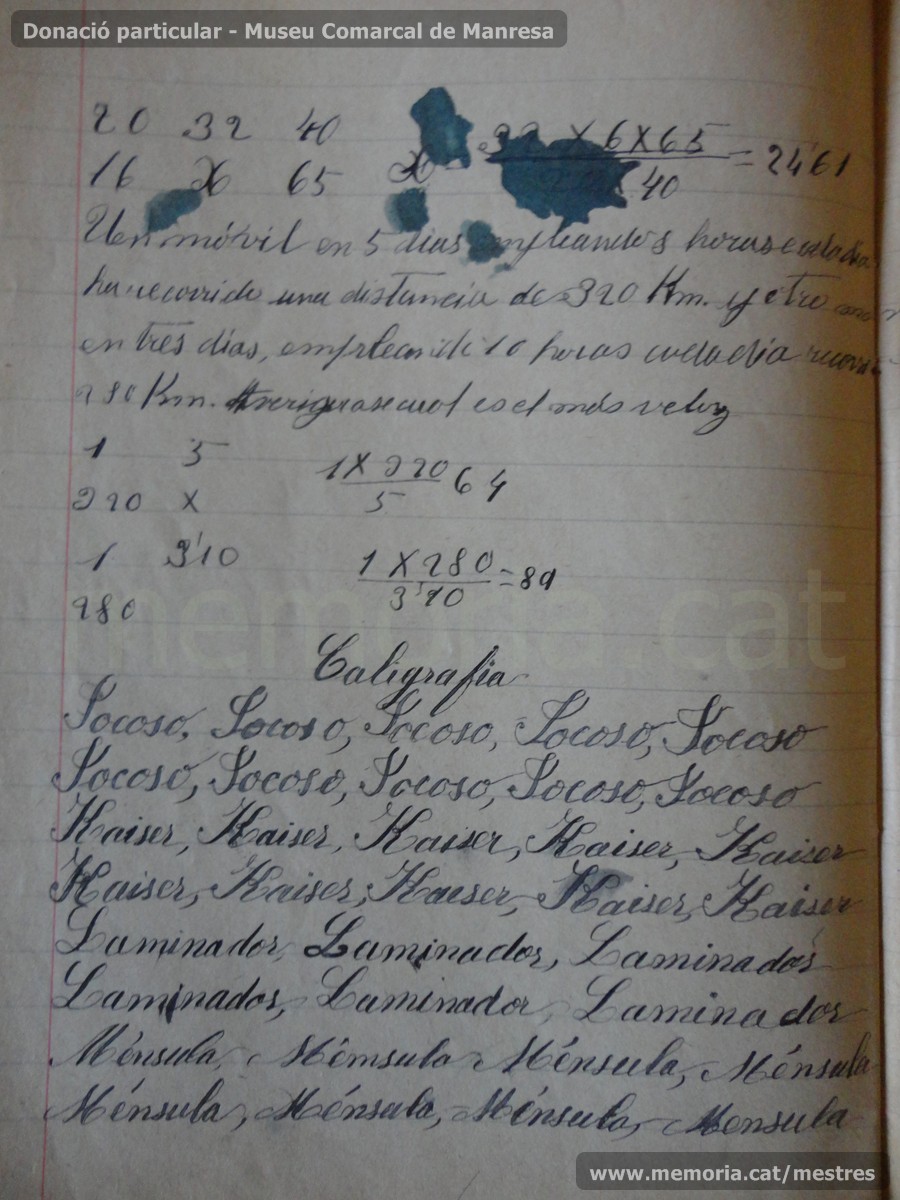 Donació particular - Museu Comarcal de Manresa
20 32 40
16 X 65 X 32 X 6 X 65 = 2461
40
Un móvil en 5 dias empleando 8 horas cada dia
ha recorrido una distancia de 320 Km. y otro
en tres dias, empleando 10 horas cada dia
280 Km. Averiguase cual es el más veloz
1 5 1 X 220 64
220 X 5
1 3'10 1 X 280 = 89
280 3'10
memoria.cat
Caligrafia
Socoso, Socoso, Socoso, Socoso, Socoso
Socoso, Socoso, Socoso, Socoso, Socoso
Kaiser, Kaiser, Kaiser, Kaiser, Kaiser
Kaiser, Kaiser, Kaeser, Kaiser, Kaiser
Laminador, Laminador, Laminador
Laminador, Laminador, Laminador
Ménsula, Mémsula, Ménsula, Ménsula
Ménsula, Ménsula, Ménsula, Mensula
www.memoria.cat/mestres